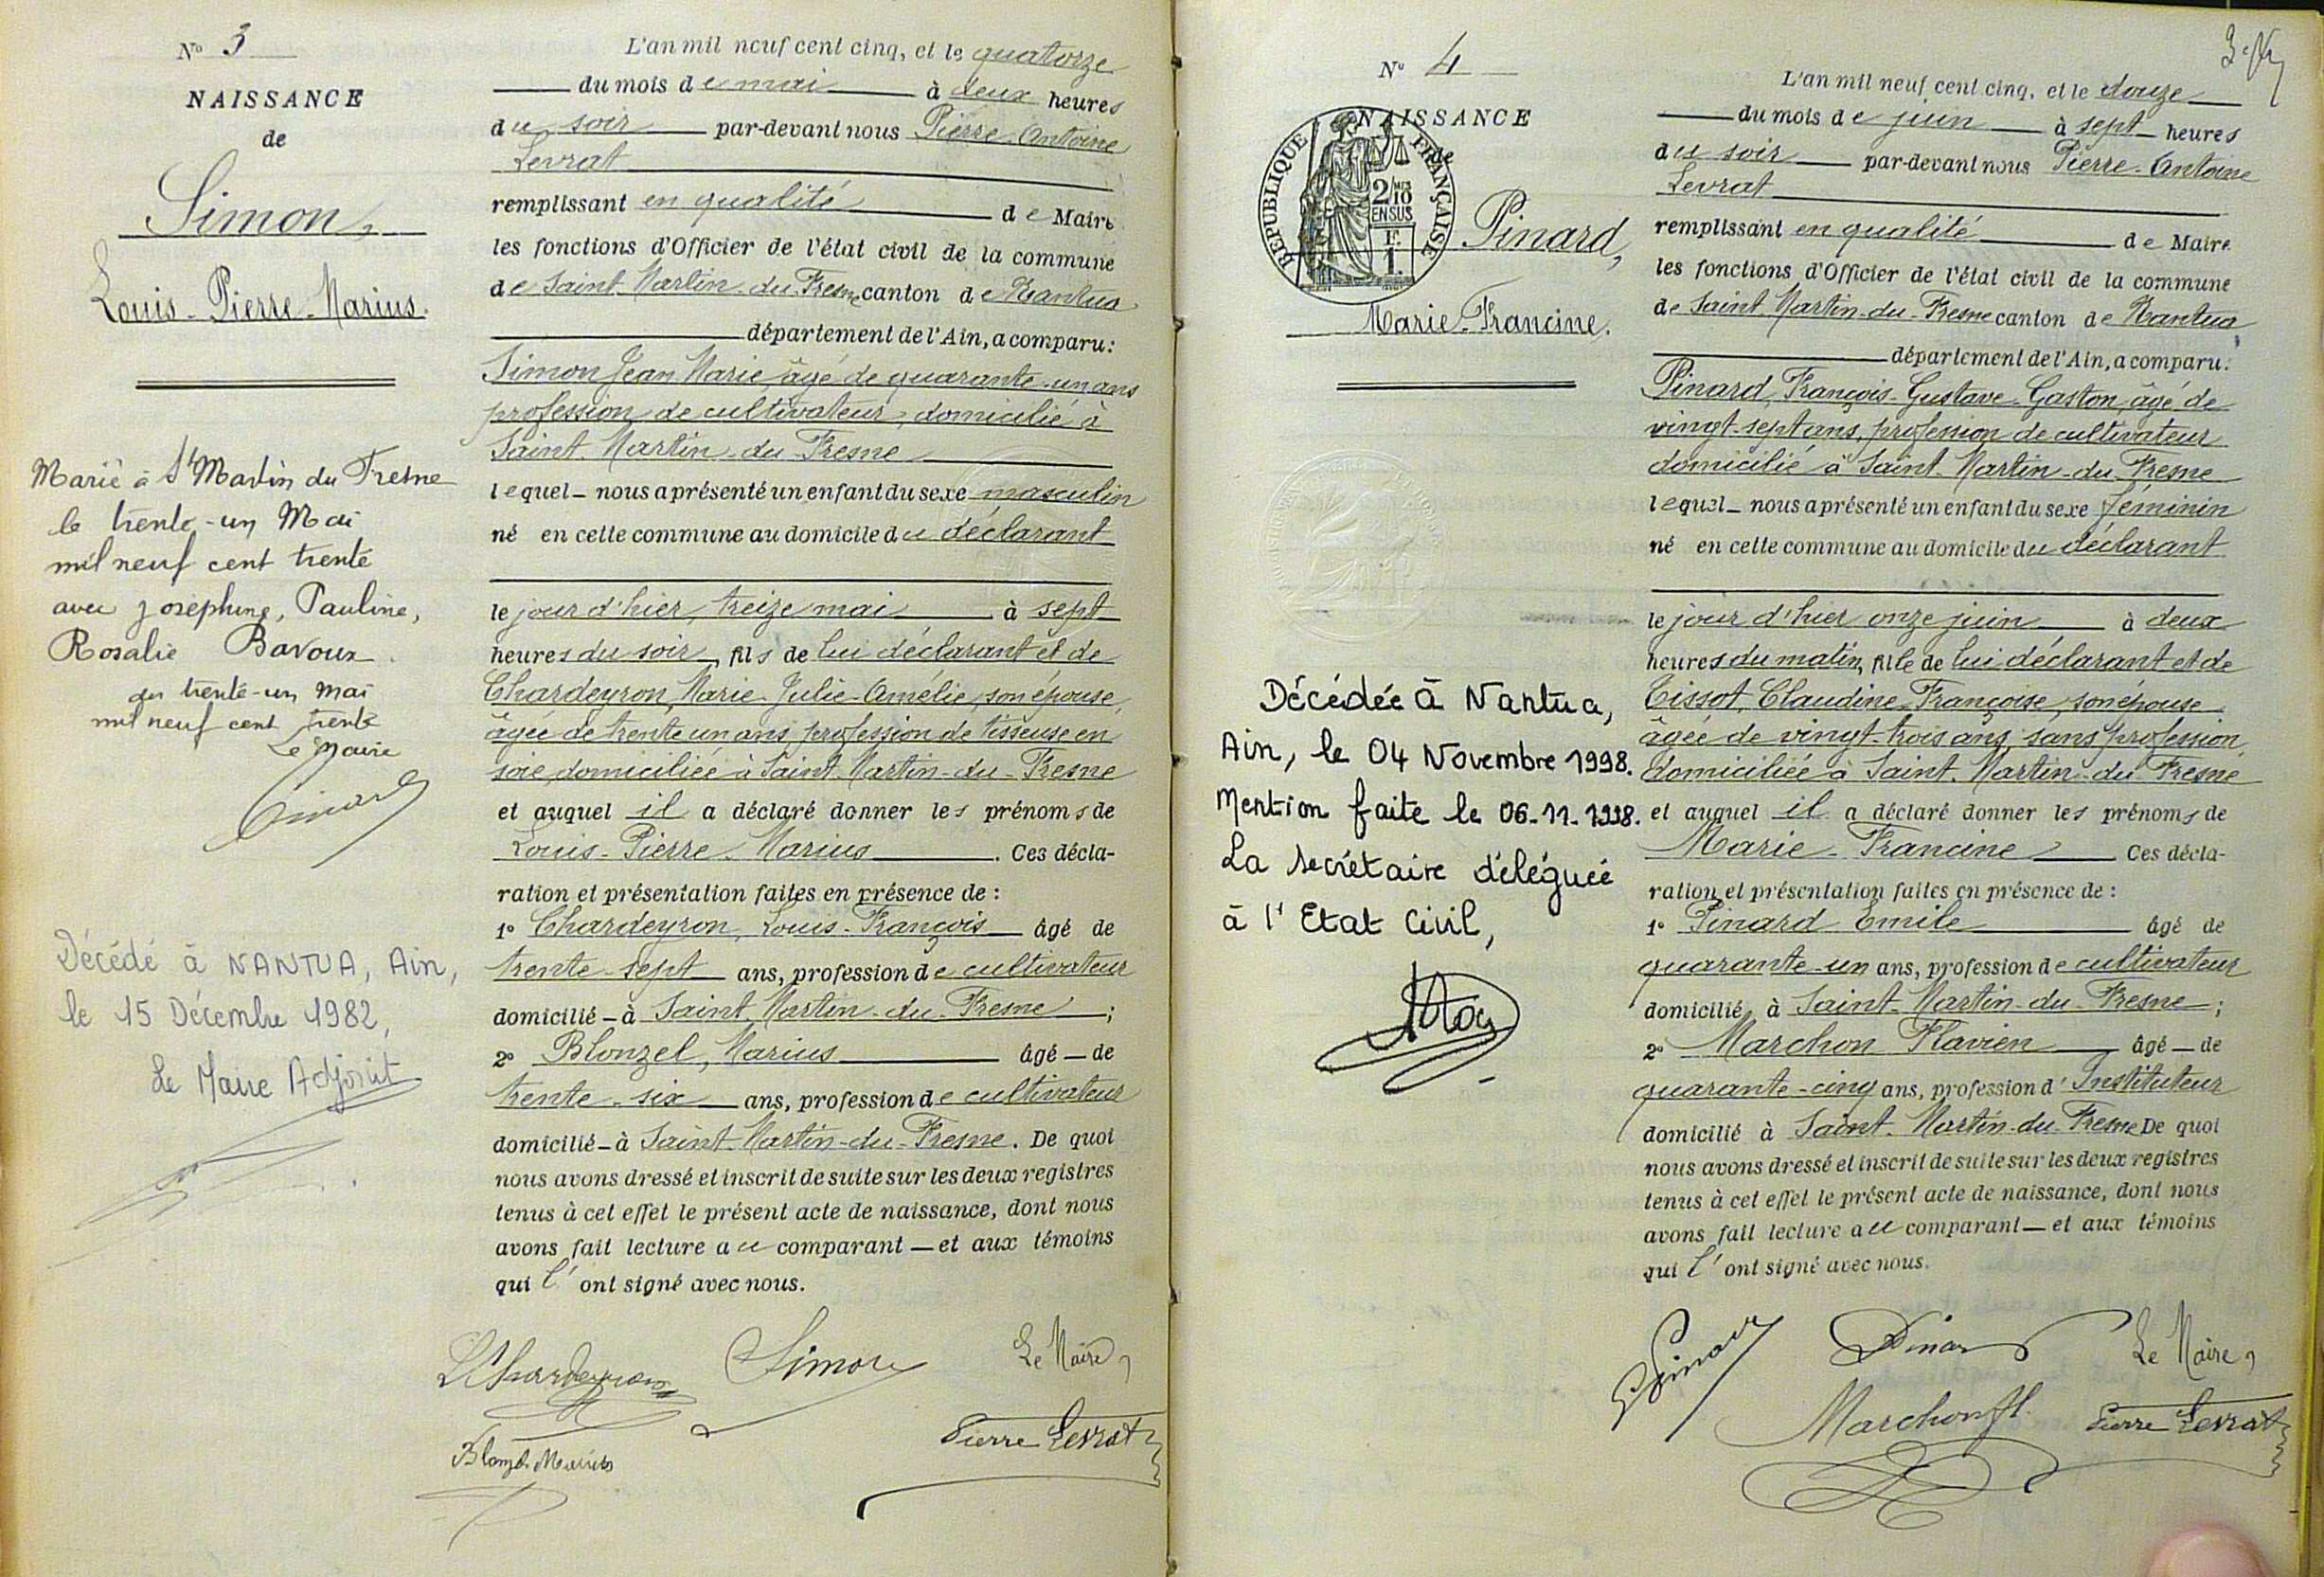 N° 3
NAISSANCE
de
Simon,
Louis-Pierre-Marius.
Marié à St Martin du Fresne
le trente-un Mai
mil neuf cent trente
avec Joséphine, Pauline,
Rosalie Bavoux.
du trente-un mai
mil neuf cent trente
Le Maire
Pinard
Décédé à NANTUA, Ain,
le 15 Décembre 1982,
Le Maire Adjoint
L'an mil neuf cent cinq, et le quatorze
du mois de mai à deux heures
du soir par-devant nous Pierre-Antoine
Levrat
remplissant en qualité de Maire
les fonctions d'Officier de l'état civil de la commune
de Saint-Martin-du-Fresne canton de Nantua
département de l'Ain, a comparu:
Simon Jean Marie, âgé de quarante-un ans
profession de cultivateur, domicilié à
Saint-Martin-du-Fresne
lequel nous a présenté un enfant du sexe masculin
né en cette commune au domicile du déclarant
le jour d'hier, treize mai à sept
heures du soir, fils de lui déclarant et de
Chardeyron, Marie-Julie-Amélie, son épouse,
âgée de trente un ans profession de tisseuse en
soie, domiciliée à Saint-Martin-du-Fresne
et auquel il a déclaré donner les prénoms de
Louis-Pierre-Marius. Ces décla-
ration et présentation faites en présence de :
1° Chardeyron, Louis-François âgé de
trente-sept ans, profession de cultivateur
domicilié à Saint-Martin-du-Fresne ;
2° Blonzel, Marius âgé de
trente-six ans, profession de cultivateur
domicilié à Saint-Martin-du-Fresne. De quoi
nous avons dressé et inscrit de suite sur les deux registres
tenus à cet effet le présent acte de naissance, dont nous
avons fait lecture au comparant et aux témoins
qui l'ont signé avec nous.
L Chardeyron Simon Le Maire,
Blonzel Marius Pierre Levrat
N° 4
NAISSANCE
de
REPUBLIQUE FRANÇAISE
2/10 MES
EN SUS
1 F.
Pinard,
Marie-Francine.
Décédée à Nantua,
Ain, le 04 Novembre 1998.
Mention faite le 06-11-1998.
La secrétaire déléguée
à l'Etat Civil,
L'an mil neuf cent cinq, et le douze
du mois de juin à sept heures
du soir par-devant nous Pierre-Antoine
Levrat
remplissant en qualité de Maire
les fonctions d'Officier de l'état civil de la commune
de Saint-Martin-du-Fresne canton de Nantua
département de l'Ain, a comparu:
Pinard, François-Gustave-Gaston, âgé de
vingt-sept ans, profession de cultivateur
domicilié à Saint-Martin-du-Fresne
lequel nous a présenté un enfant du sexe féminin
né en cette commune au domicile du déclarant
le jour d'hier onze juin à deux
heures du matin, fille de lui déclarant et de
Tissot, Claudine-Françoise, son épouse
âgée de vingt-trois ans, sans profession,
domiciliée à Saint-Martin-du-Fresne
et auquel il a déclaré donner les prénoms de
Marie-Francine Ces décla-
ration et présentation faites en présence de :
1° Pinard Emile âgé de
quarante-un ans, profession de cultivateur
domicilié à Saint-Martin-du-Fresne ;
2° Marchon Flavien âgé de
quarante-cinq ans, profession d'Instituteur
domicilié à Saint-Martin-du-Fresne De quoi
nous avons dressé et inscrit de suite sur les deux registres
tenus à cet effet le présent acte de naissance, dont nous
avons fait lecture au comparant et aux témoins
qui l'ont signé avec nous.
Pinard Pinard Le Maire,
Marchon fl. Pierre Levrat